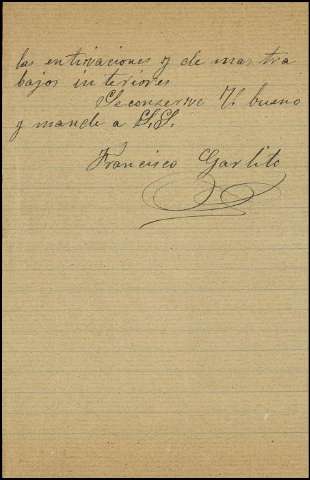 las entivaciones y de mas tra
bajos interiores
Se conserve V. bueno
y mande a S.S.
Francisco Garlito